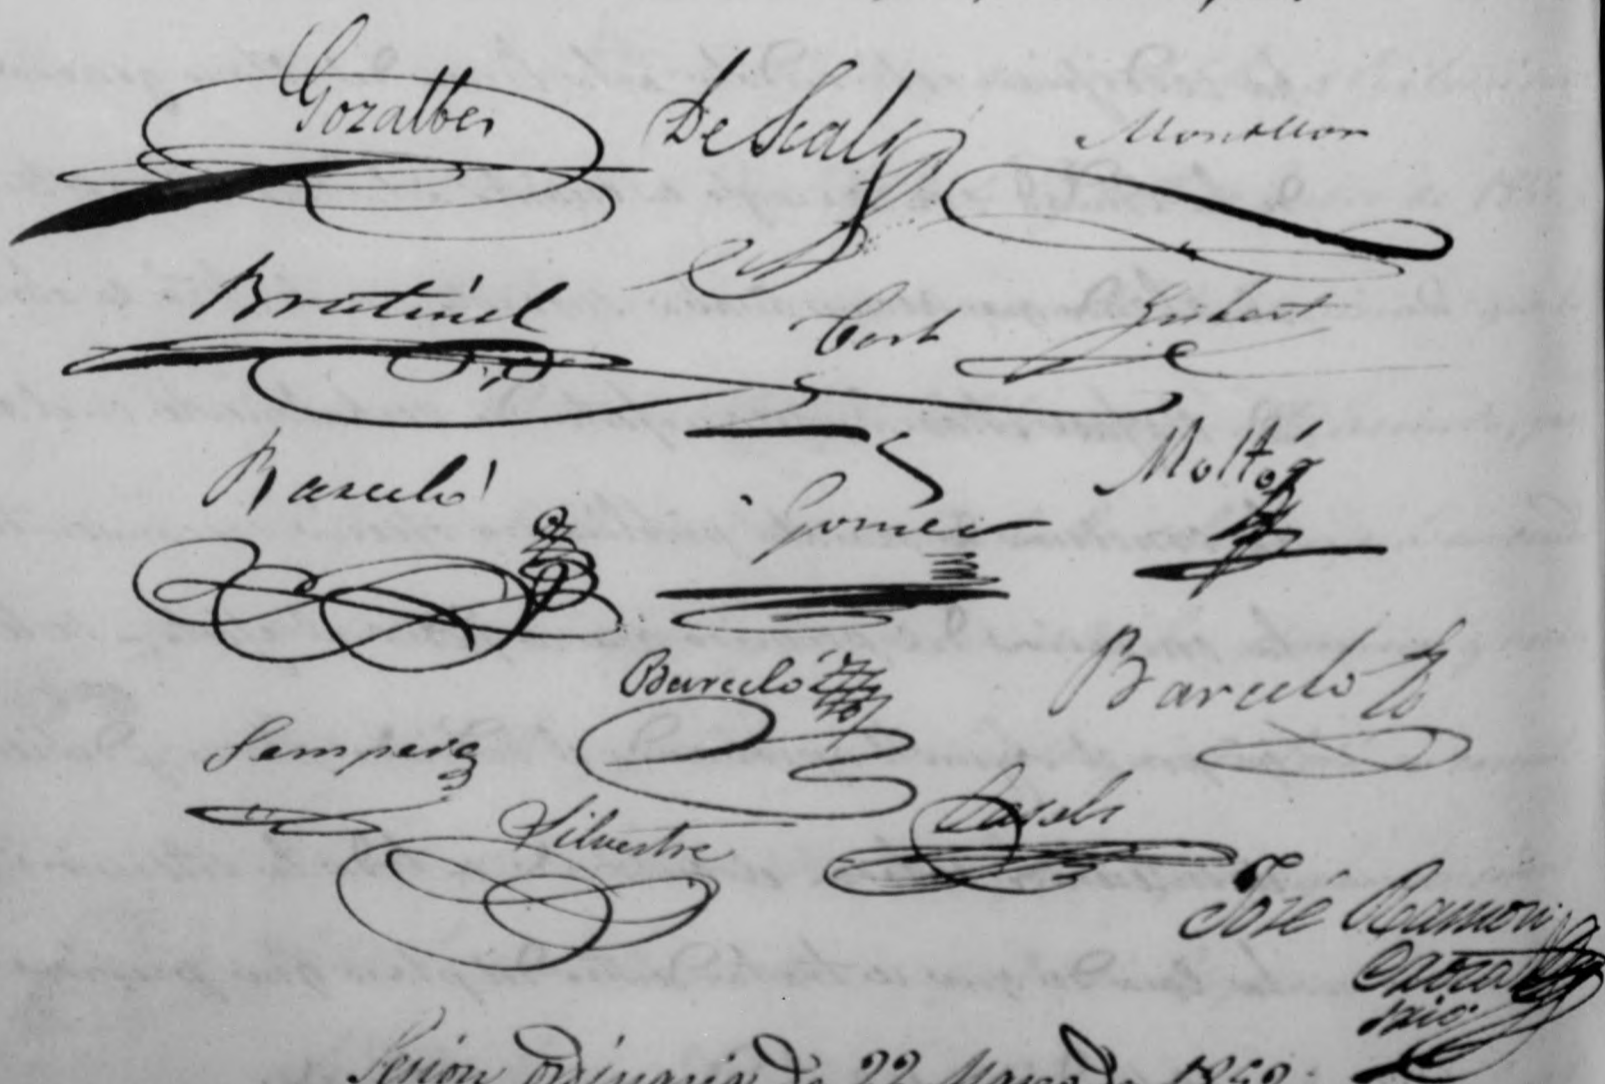 Gozalbes DeScals Monllor
Brutinel Cort Gisbert
Barceló Gomez Moltó
Barceló Barceló
Sempere
Silvestre Casels
José Ramon
srio.
Sesion Ordinaria de 22 Marzo de